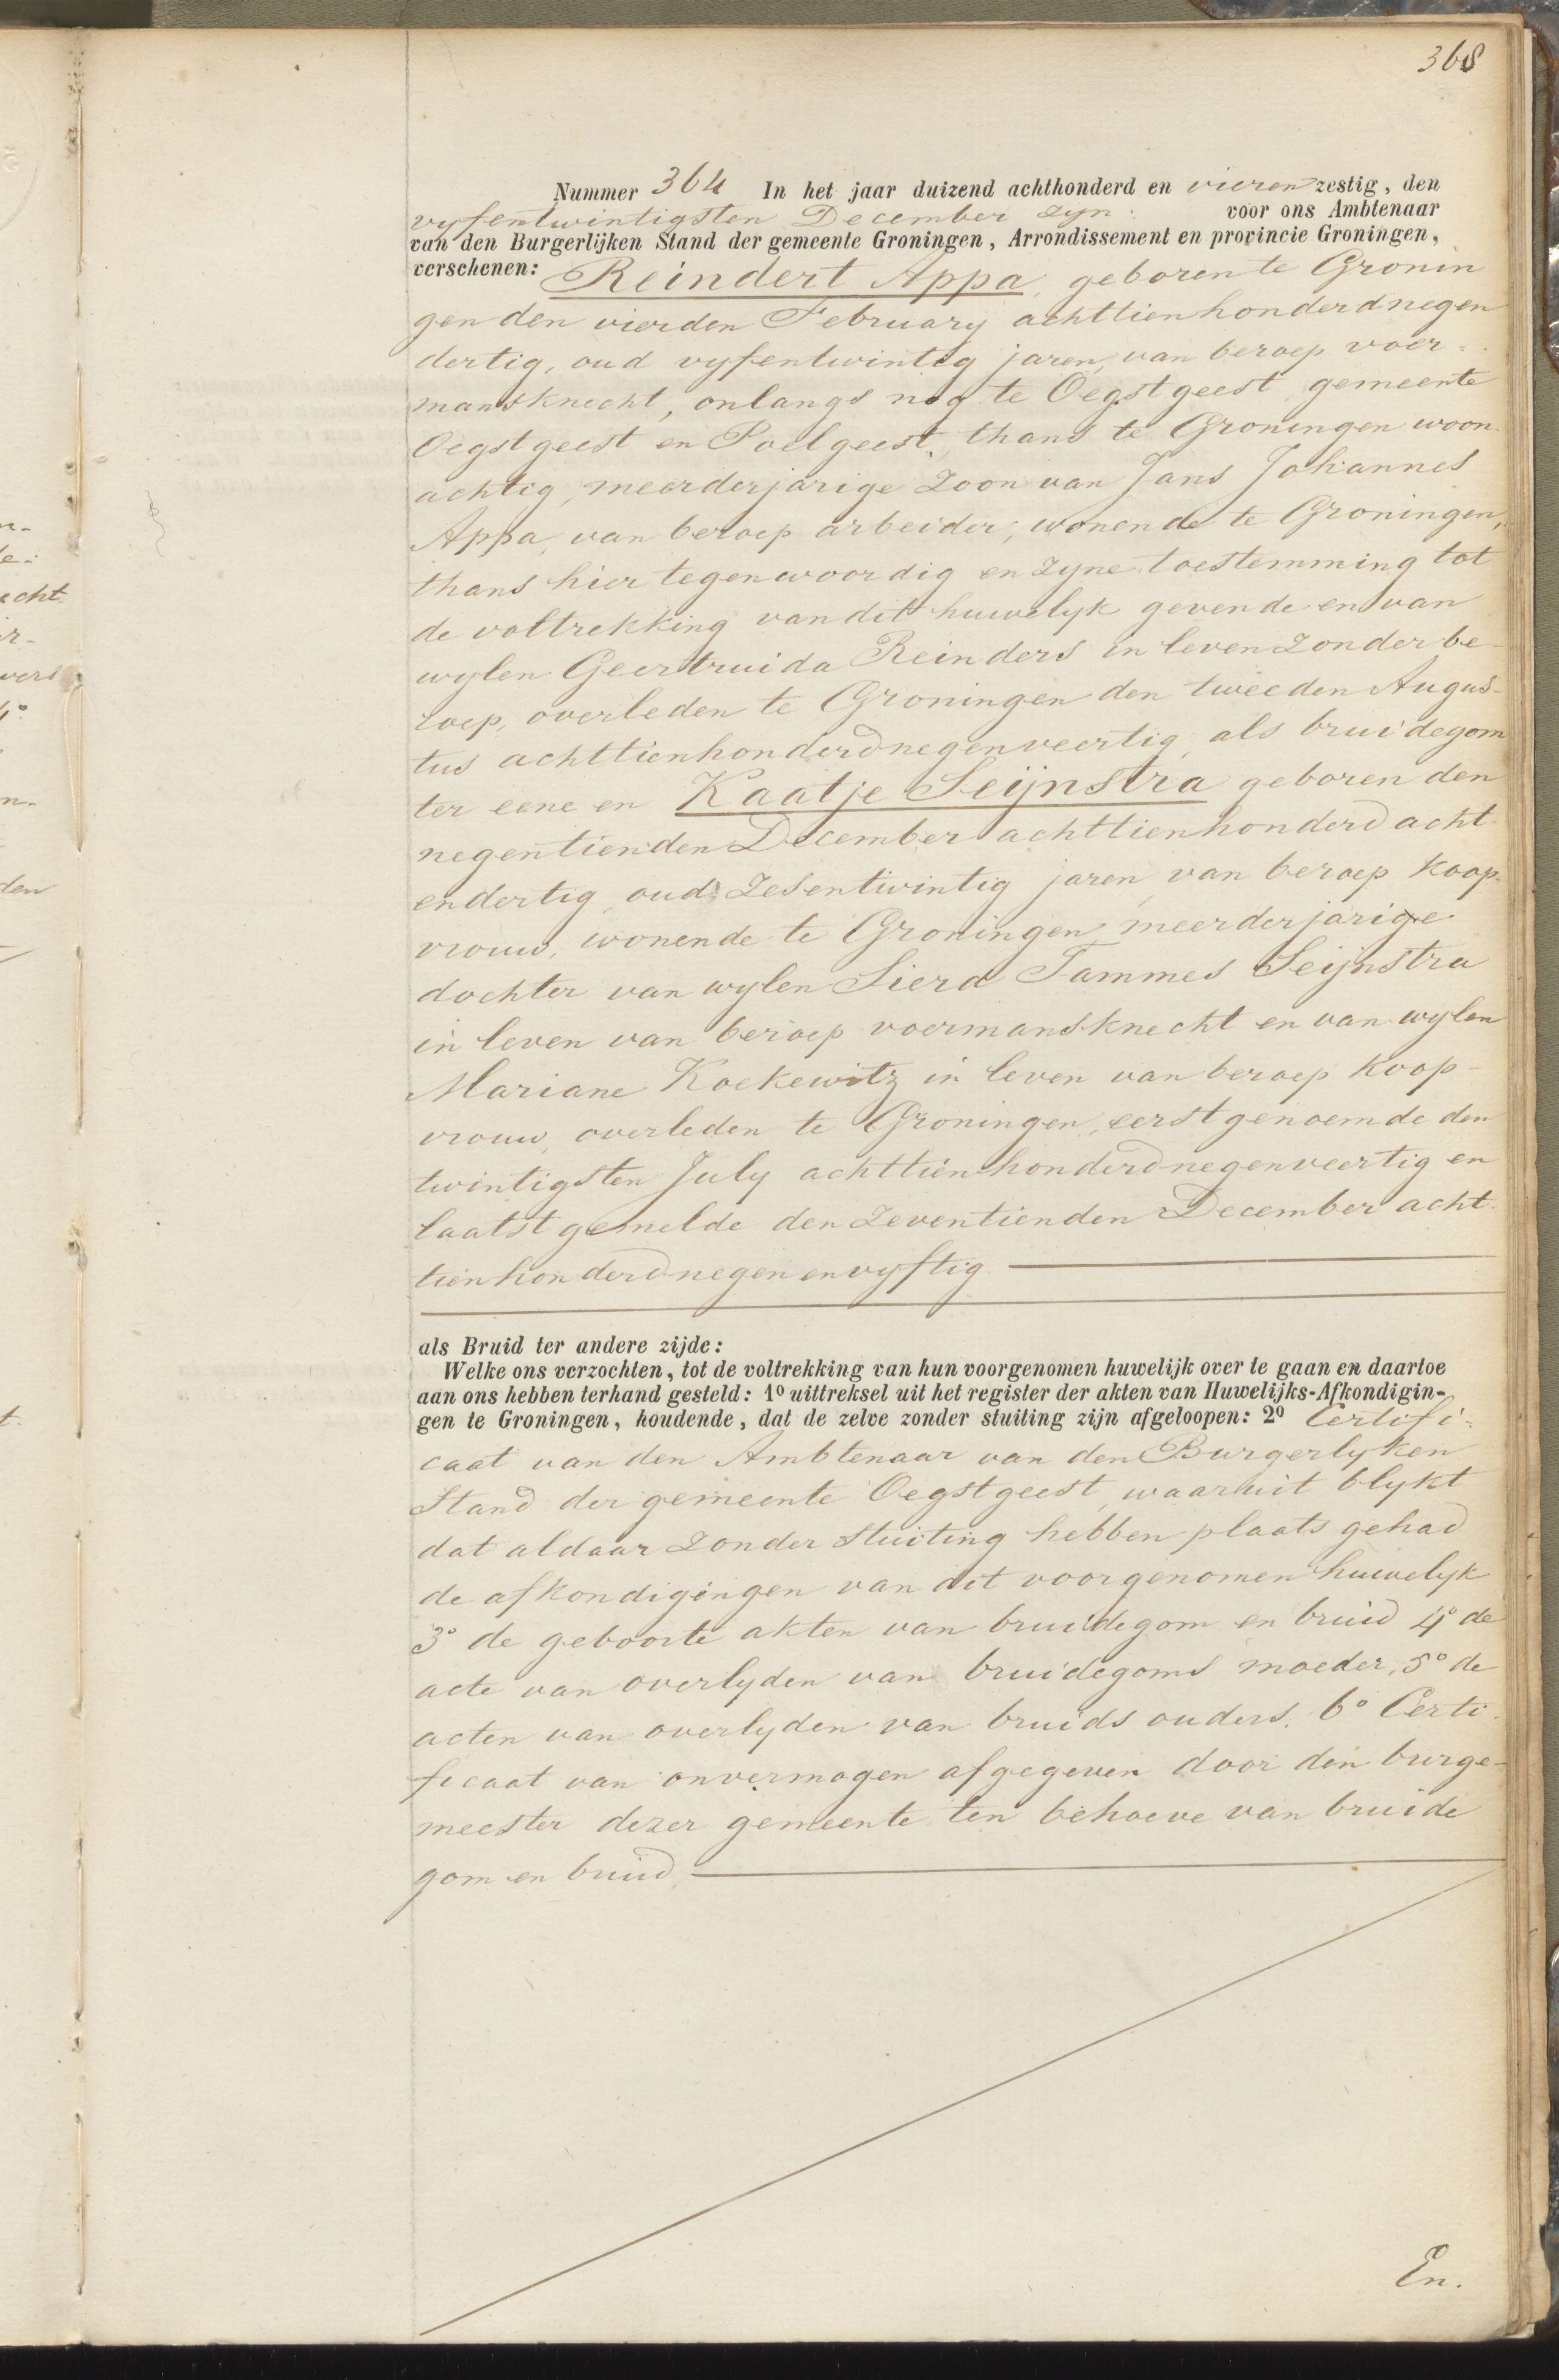 368
Nummer 364 In het jaar duizend achthonderd en vieren zestig, den
vyfentwintigsten December zyn voor ons Ambtenaar
van den Burgerlijken Stand der gemeente Groningen, Arrondissement en provincie Groningen,
verschenen: Reindert Appa, geboren te Gronin
gen den vierden February achttienhonderdnegen
dertig, oud vyfentwintig jaren, van beroep voer-
mansknecht, onlangs nog te Oegstgeest gemeente
Oegstgeest en Poelgeest, thans te Groningen woon-
achtig, meerderjarige Zoon van Jans Johannes
Appa, van beroep arbeider, wonende te Groningen,
thans hier tegenwoordig en zyne toestemming tot
de voltrekking van dit huwelyk gevende en van
wylen Geertruida Reinders in leven Zonder be-
roep, overleden te Groningen den tweeden Augus-
tus achttienhonderdnegenveertig, als bruidegom
ter eene en Kaatje Seijnstra geboren den
negentienden December achttienhonderd acht-
endertig, oud Zesentwintig jaren, van beroep Koop-
vrouw, wonende te Groningen meerderjarige
dochter van wylen Sierd Tammes Seijnstra
in leven van beroep voermansknecht en van wylen
Mariane Koekewitz in leven van beroep Koop-
vrouw, overleden te Groningen, eerstgenoemde den
twintigsten July achttienhonderdnegenveertig en
laatstgemelde den Zeventienden December acht-
tienhonderdnegenenvyftig
als Bruid ter andere zijde:
Welke ons verzochten, tot de voltrekking van hun voorgenomen huwelijk over te gaan en daartoe
aan ons hebben terhand gesteld: 1º uittreksel uit het register der akten van Huwelijks-Afkondigin-
gen te Groningen, houdende, dat de zelve zonder stuiting zijn afgeloopen: 2º Certifi-
caat van den Ambtenaar van den Burgerlyken
Stand der gemeente Oegstgeest, waaruit blykt
dat aldaar Zonder Stuiting hebben plaats gehad
de afkondigingen van dit voorgenomen huwelyk
3º de geboorte akten van bruidegom en bruid 4º de
acte van overlyden van bruidegoms moeder, 5º de
acten van overlyden van bruids ouders. 6º Certi-
ficaat van onvermogen afgegeven door den burge-
meester dezer gemeente ten behoeve van bruide
gom en bruid.
En.